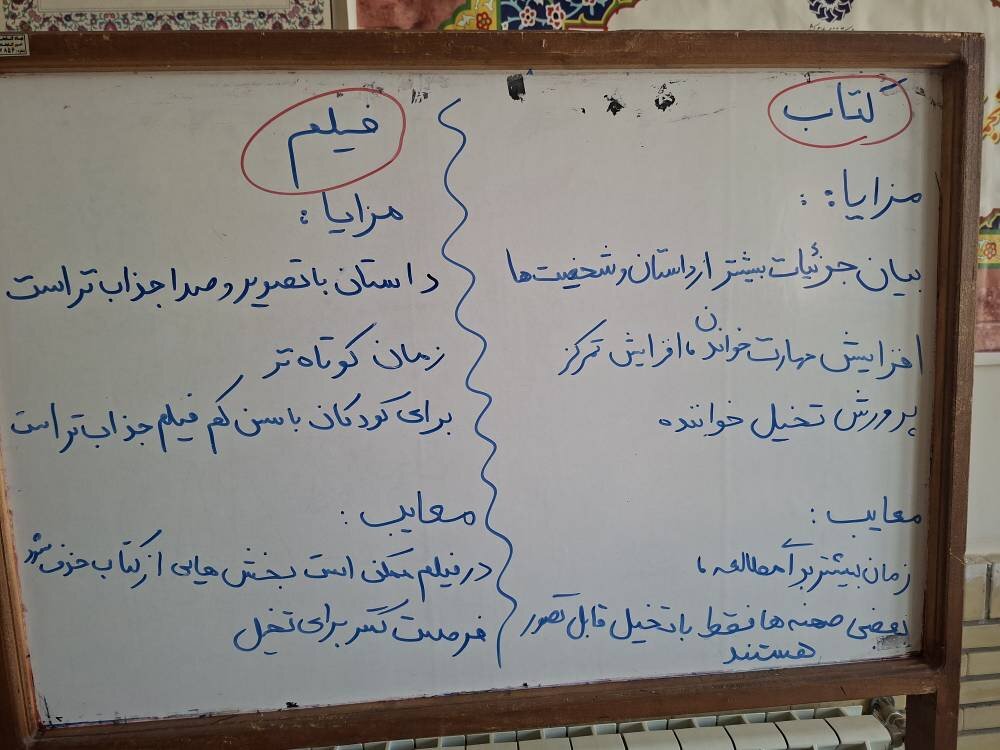 کتاب
مزایا :
بیان جزئیات بیشتر از داستان و شخصیت ها
افزایش مهارت خواندن ، افزایش تمرکز
پرورش تخیل خواننده
معایب :
زمان بیشتر برای مطالعه ،
بعضی صحنه ها فقط با تخیل قابل تصور
هستند
فیلم
مزایا :
داستان با تصویر و صدا جذاب تر است
زمان کوتاه تر
برای کودکان با سن کم فیلم جذاب تر است
معایب :
در فیلم ممکن است بخش هایی از کتاب حذف شود
فرصت کمتر برای تخیل